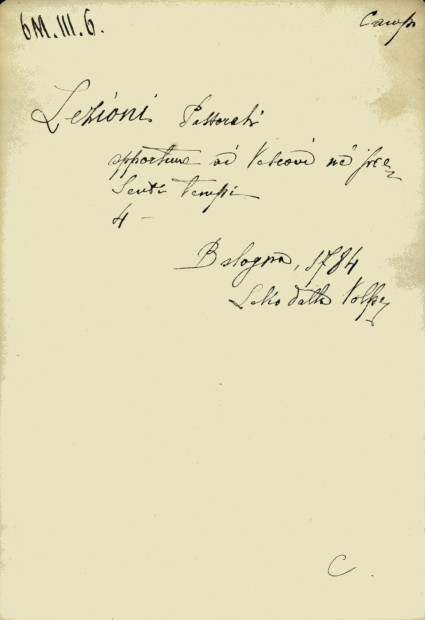 6M.III.6.
Camp
Lezioni Pastorali
opportune ai Vescovi ne' pre-
senti tempi
4 -
Bologna, 1784
Lelio dalla Volpe
C.